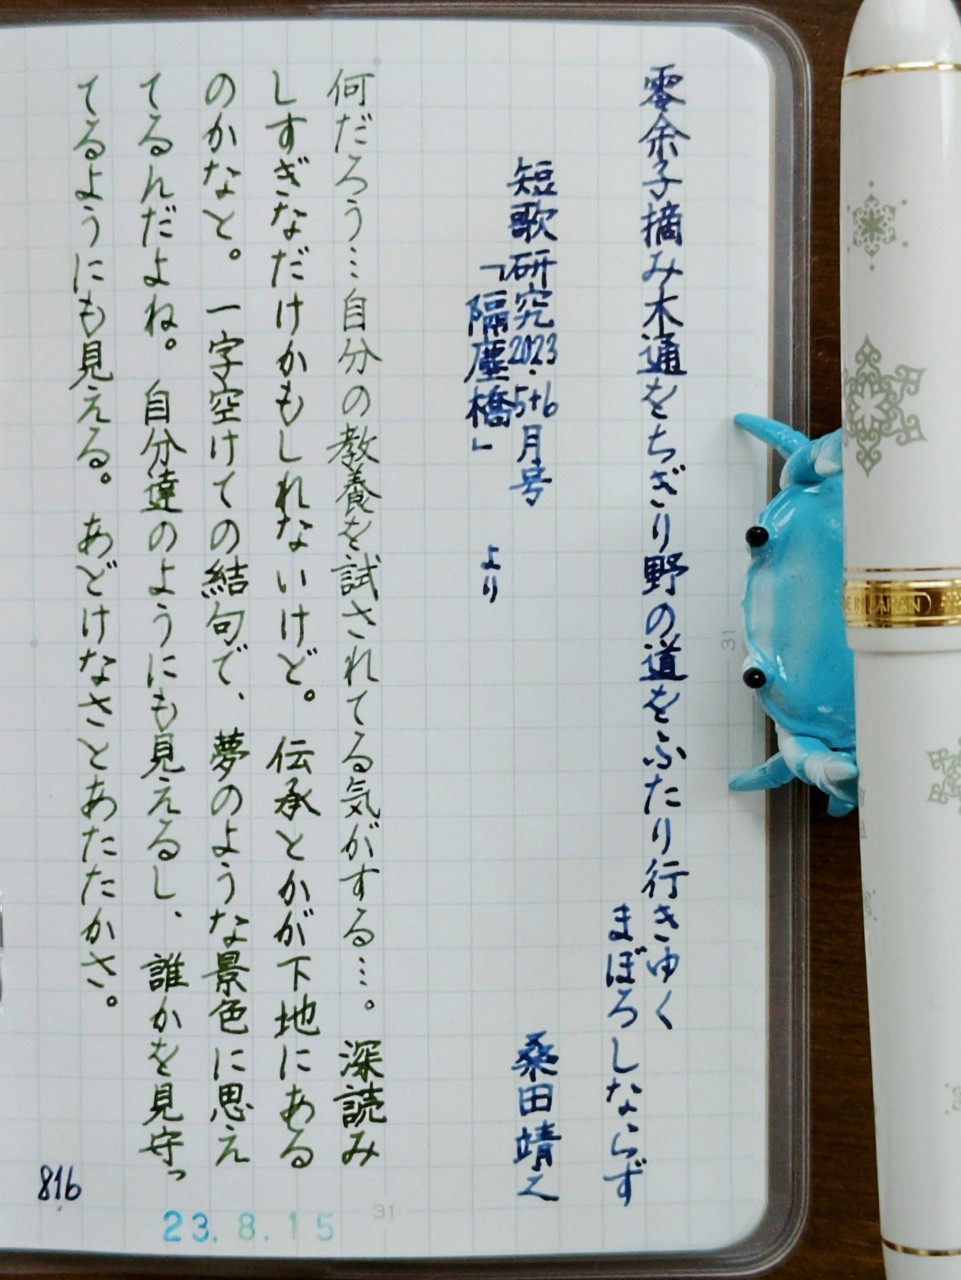 零余子摘み木通をちぎり野の道をふたり行きゆく
まぼろしならず
短歌研究2023.5+6月号
「隔塵橋」 より
桑田靖之
何だろう…自分の教養を試されてる気がする…。深読み
しすぎなだけかもしれないけど。伝承とかが下地にある
のかなと。一字空けての結句で、夢のような景色に思え
てるんだよね。自分達のようにも見えるし、誰かを見守っ
てるようにも見える。あどけなさとあたたかさ。
816
23.8.15
31
31
IN JAPAN